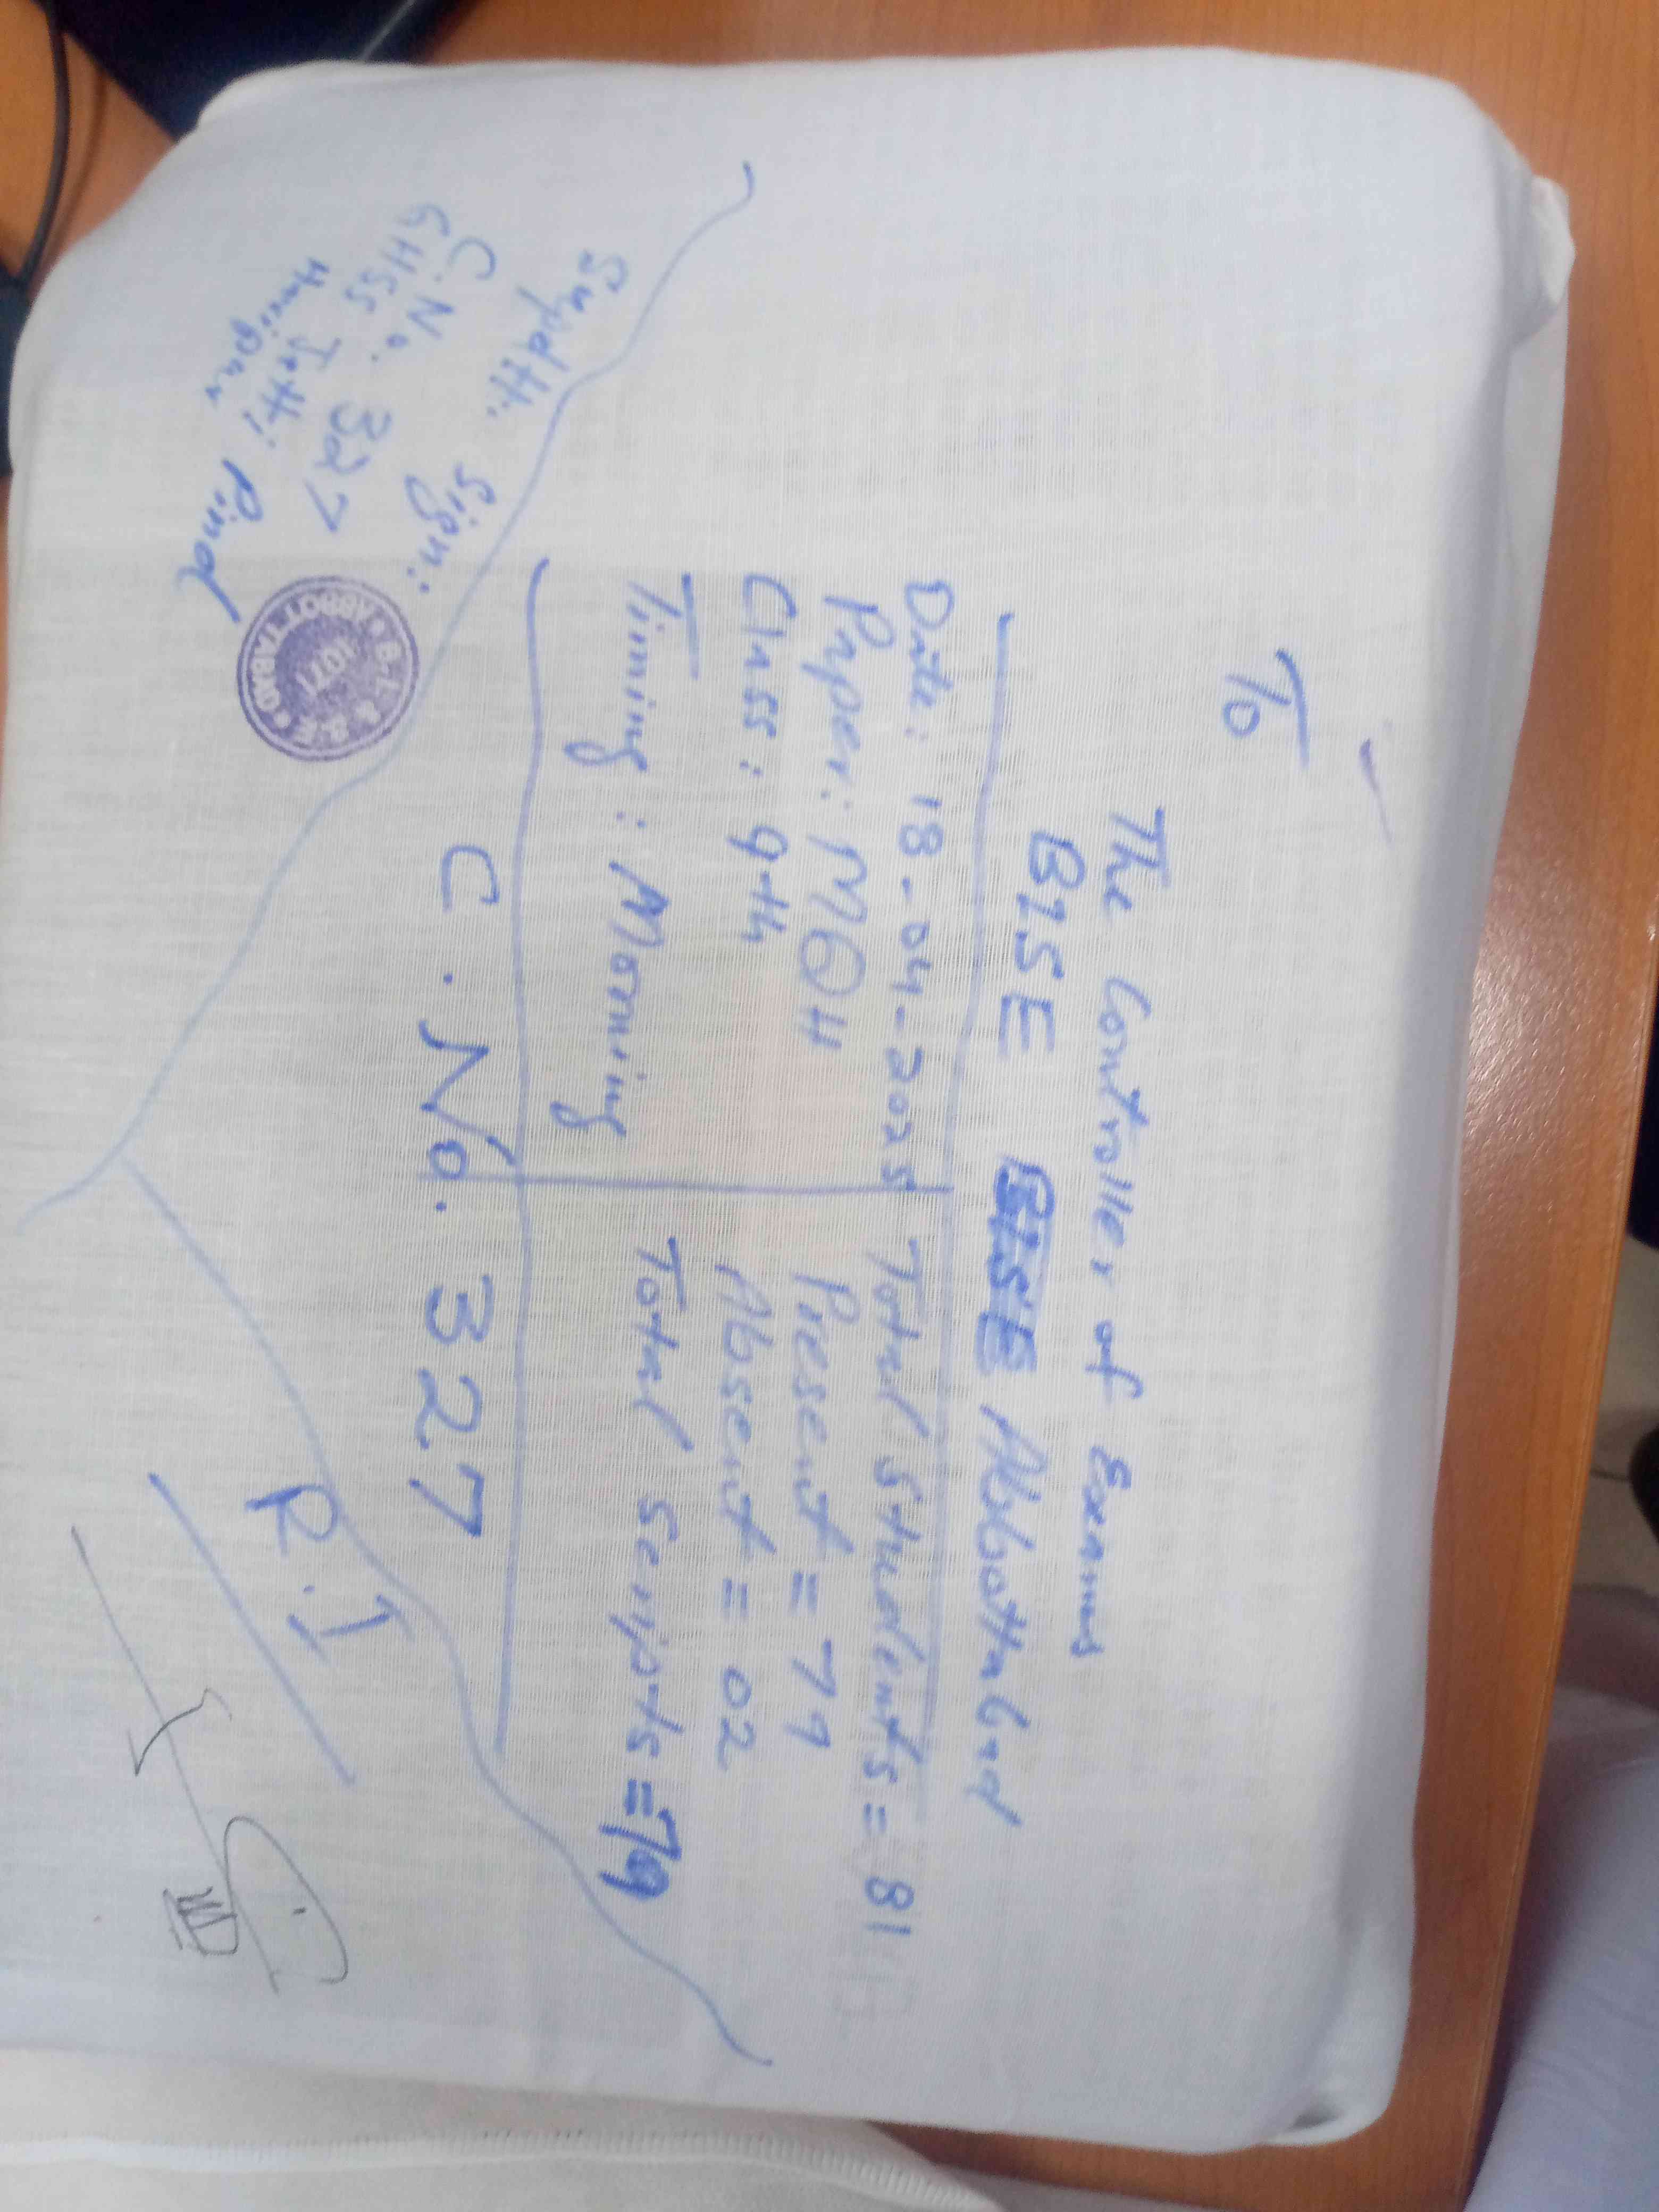 To
The Controller of Exams
BISE BISE Abbottabad
Date: 18-04-2025
Paper: MQH
Class: 9th
Timing: Morning
Total Students = 81
Present = 79
Absent = 02
Total Scripts = 79
C.No. 327
Supdtt. Sign:
C.No. 327
GHSS Jatti Pind
Haripur
R.I